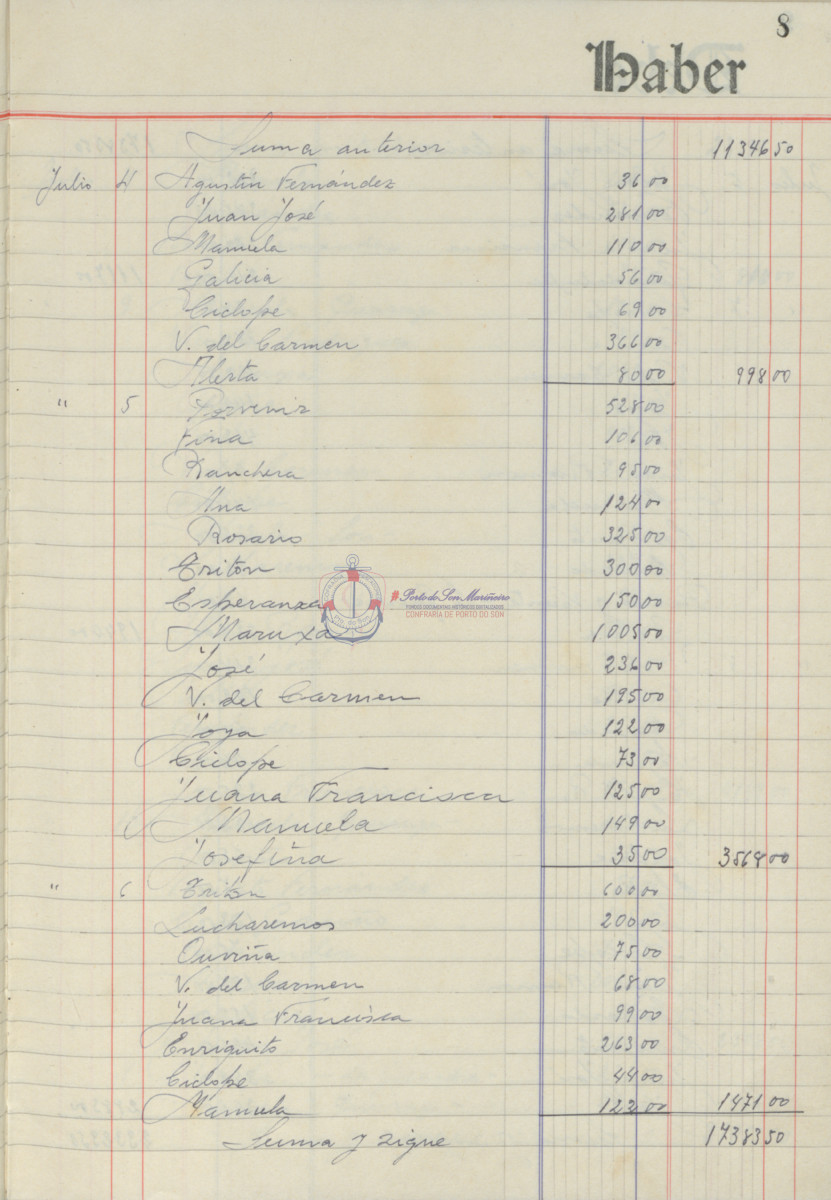 8
Haber
Suma anterior 11346 50
Julio 4 Agustín Fernández 36 00
Juan José 281 00
Manuela 110 00
Galicia 56 00
Ciclope 69 00
V. del Carmen 366 00
Alerta 80 00 998 00
" 5 Porvenir 528 00
Fina 106 00
Ranchera 95 00
Ana 124 00
Rosario 325 00
Triton 300 00
Esperanza 150 00
Maruxa 1005 00
José 236 00
V. del Carmen 195 00
Joya 122 00
Ciclope 73 00
Juana Francisca 125 00
Manuela 149 00
Josefina 35 00 3568 00
" 6 Triton 600 00
Lucharemos 200 00
Ouviña 75 00
V. del Carmen 68 00
Juana Francisca 99 00
Enriquito 263 00
Ciclope 44 00
Manuela 122 00 1471 00
Suma y sigue 17383 50
#Porto do Son Mariñeiro
FONDOS DOCUMENTAIS HISTÓRICOS DIXITALIZADOS
CONFRARÍA DE PORTO DO SON